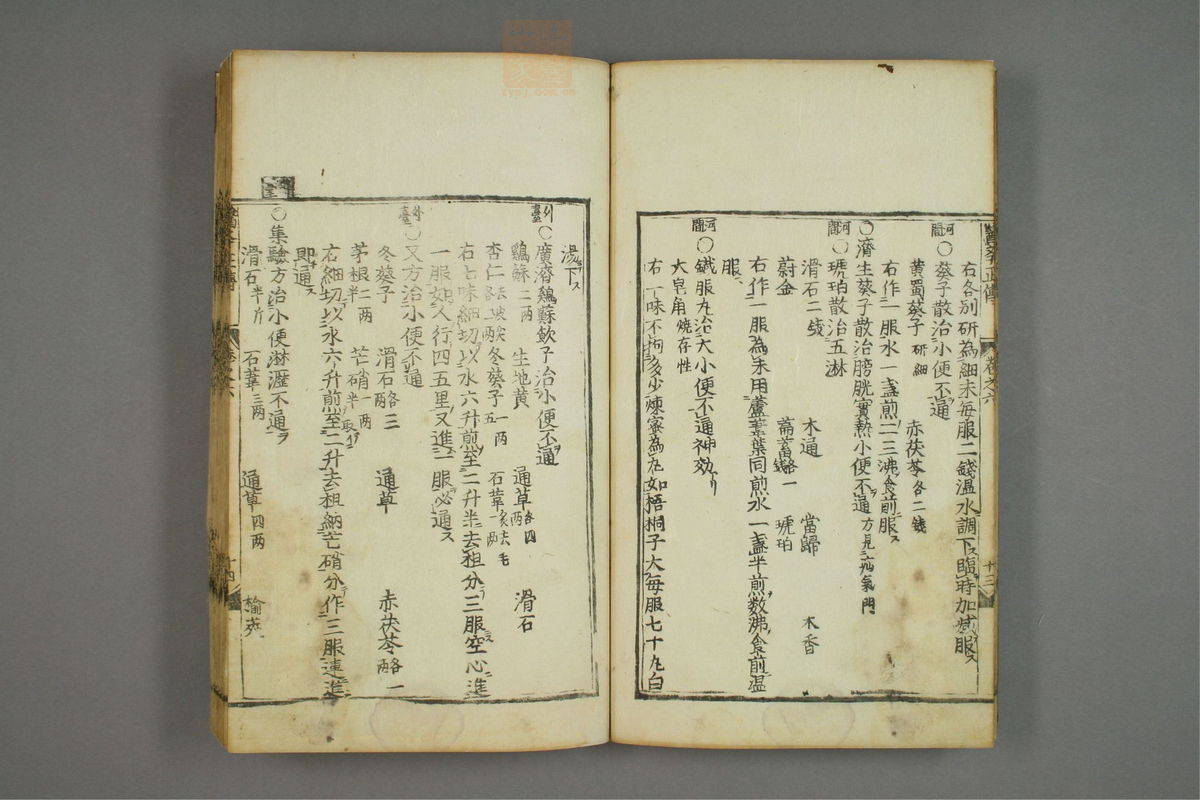 右各別研為細末毎服二錢温水調下ス臨時加減服ス
河間
〇葵子散治小便不通
黄蜀葵子研細 赤茯苓各二錢
右作一服水一盞煎一二三沸食前服ス
〇濟生葵子散治膀胱實熱小便不通方見疝氣門
河間
〇琥珀散治五淋
滑石二錢 木通 當歸 木香
蔚金 萹蓄各一錢 琥珀
右作一服為末用蘆葦葉同煎水一盞半煎数沸食前温
服
河間
〇鐵服丸治大小便不通神効
大皂角燒存性
右一味不拘多少煉蜜為丸如梧桐子大毎服七十丸白
卷之六
十三
湯下ス
外臺
〇廣濟鷄蘇飲子治小便不通
鷄蘇二両 生地黄 通草各四両 滑石
杏仁 冬葵子一両 石葦一両炙去毛
右七味細切以水六升煎至二升半去租分三服空心進
一服如人行四五里又進一服必通ス
外臺
〇又方治小便不通
冬葵子 滑石各三両 通草 赤茯苓各一両
茅根二両半 芒硝一両半
右細切以水六升煎至二升去租納芒硝分作三服連進
即通ス
〇集驗方治小便淋瀝不通
滑石半斤 石葦三両 通草四両
十四